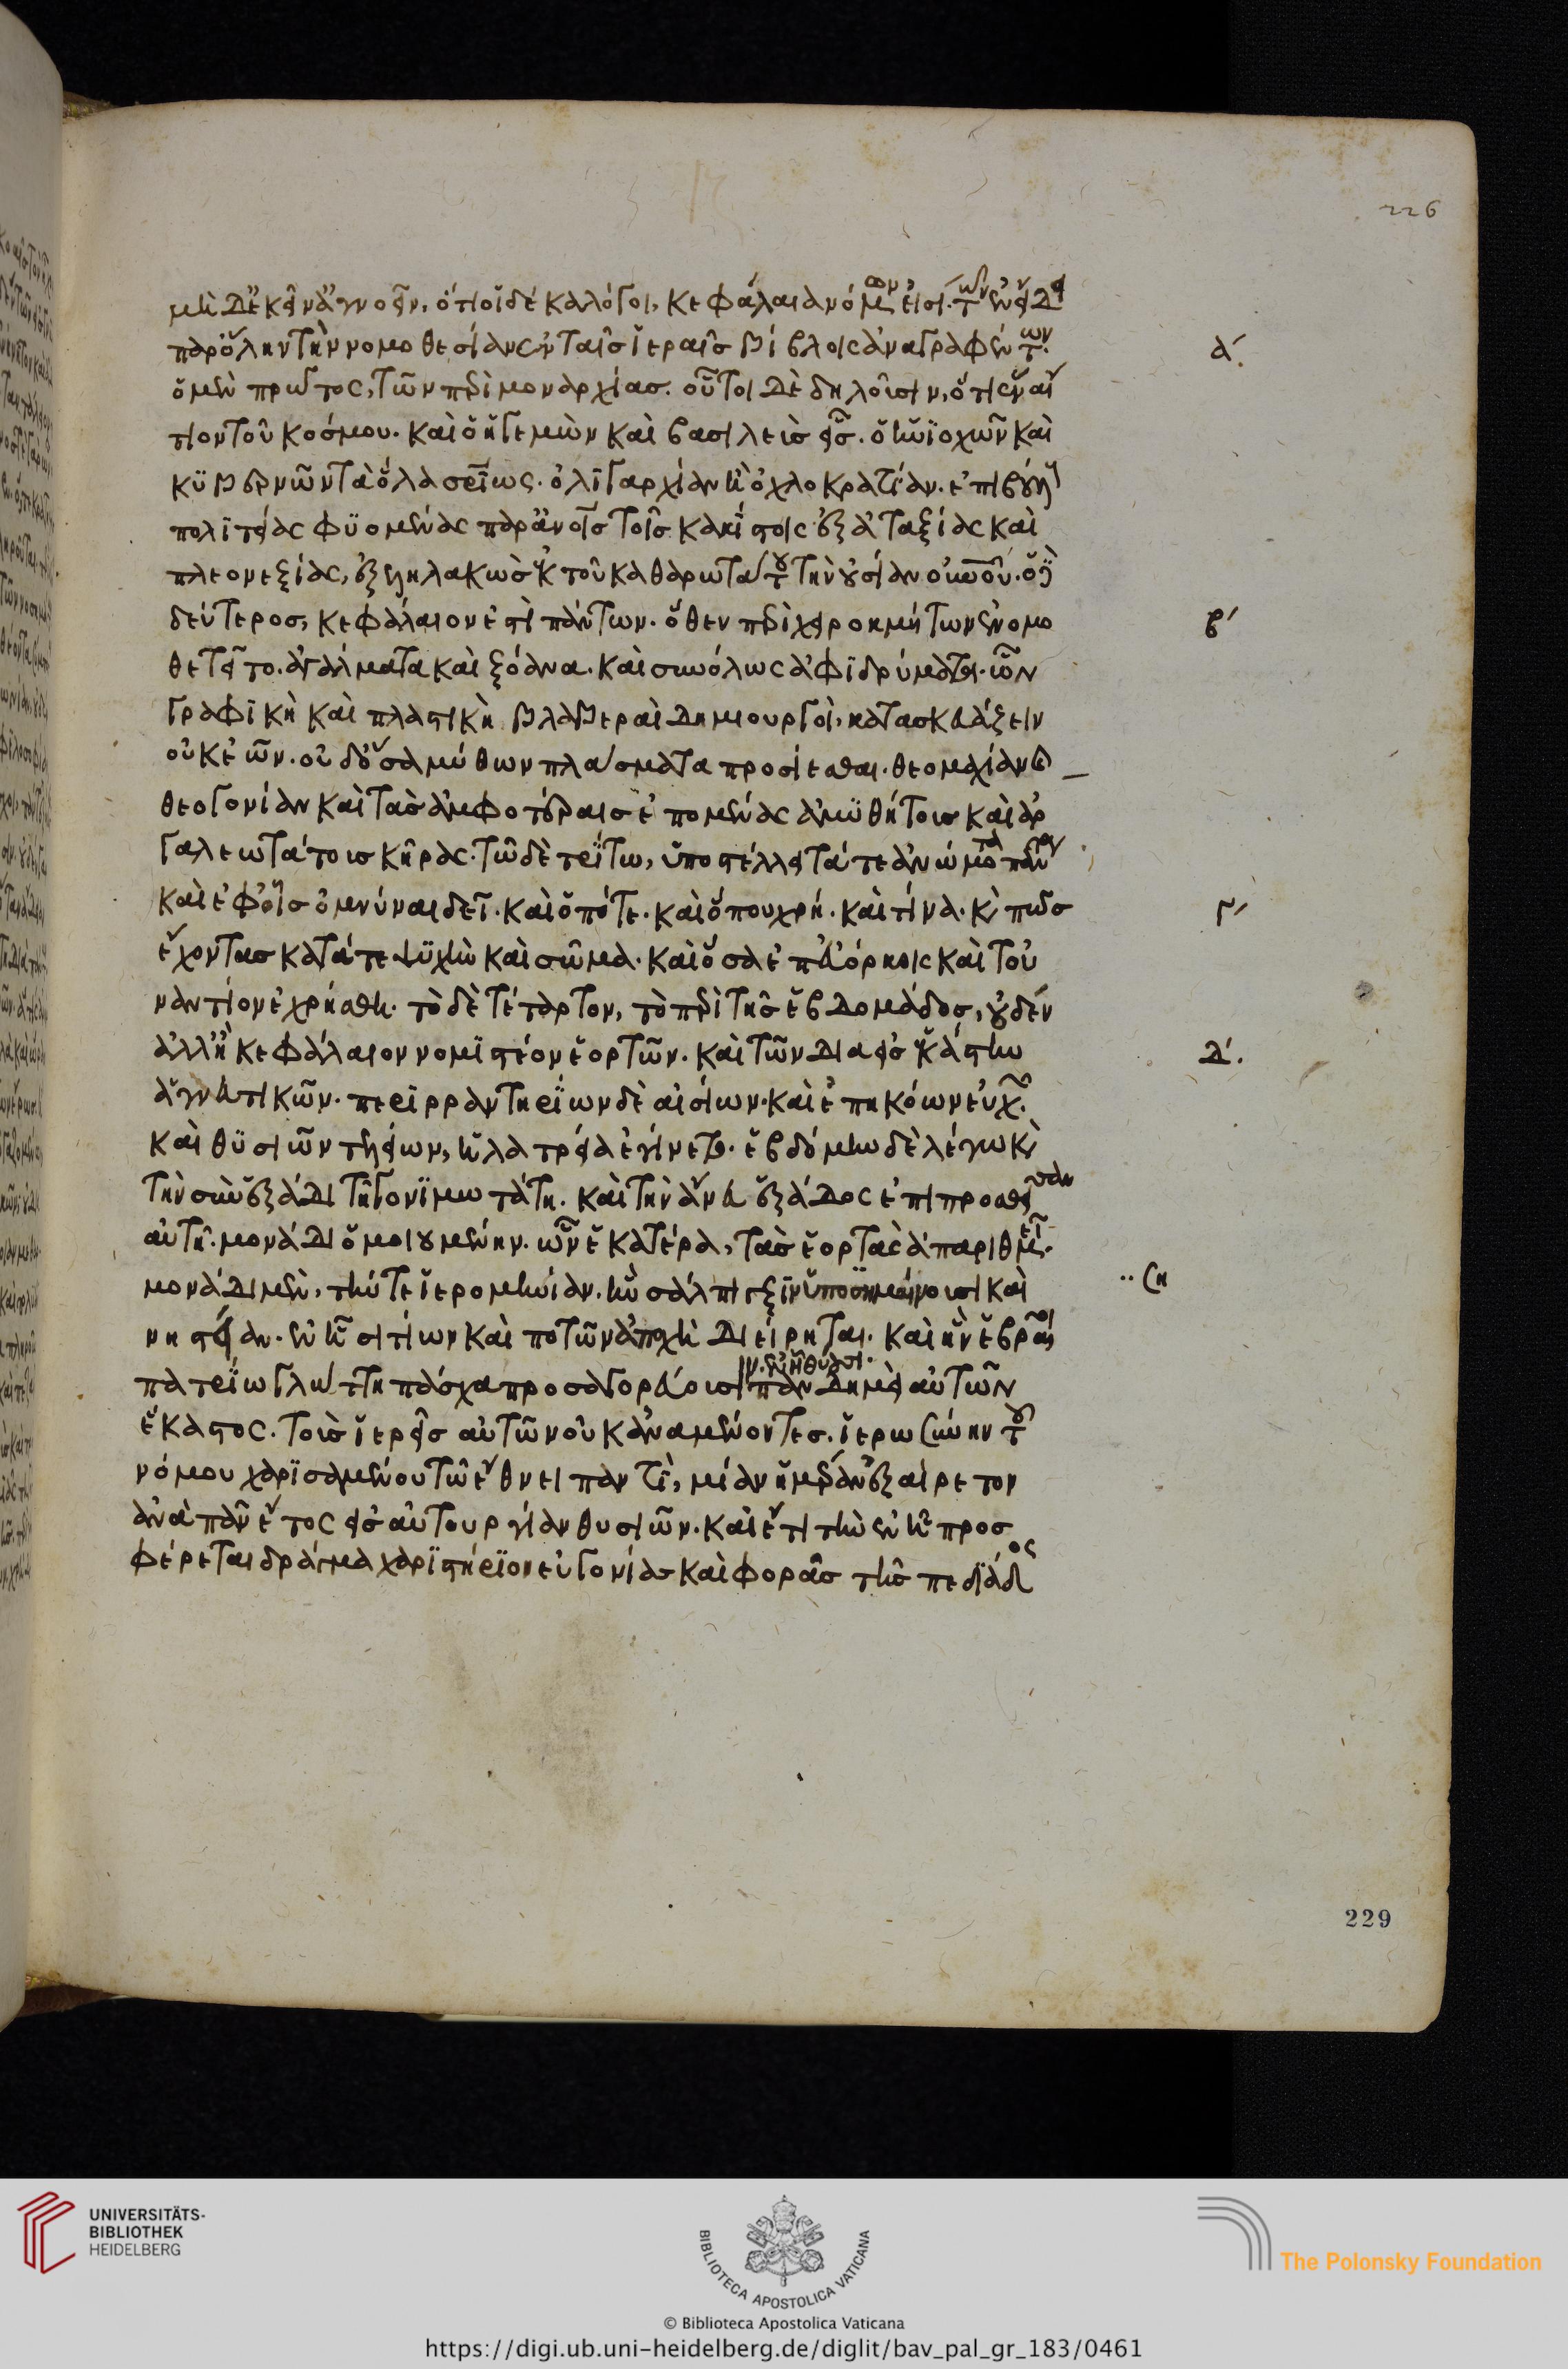 μὴ δὲ κεῖν ἀγνοεῖν, ὅτι οἱ δέκα λόγοι, κεφάλαια νόμων εἰσι. τῶν ἐν εἴδει
παρ ὅλην τὴν νομοθεσίαν ἐν ταῖς ἱεραῖς βίβλοις ἀναγραφέντων.
ὁ μὲν πρῶτος, τῶν περὶ μοναρχίας. οὗτοι δὲ δηλοῦσιν, ὅτι ἓν αἴ
τιον τοῦ κόσμου. καὶ ὁ ἡγεμὼν καὶ βασιλεὺς εἷς. ὁ ἡνϊοχῶν καὶ
κϋβερνῶν τὰ ὅλα σωτηρίως. ὀλϊγαρχίαν ἢ ὀχλοκρατίαν. ἐπιβούλους
πολϊτείας φϋομένας παρ ἀνοις τοῖς κακίστοις ἐξ ἀταξίας καὶ
πλεονεξίας, ἐξεληλακὼς ἐκ τοῦ καθαρωτάτου τὴν οὐσίαν οὐνοῦ. ὁ δὲ
δεύτερος, κεφάλαιον ἐστὶ πάντων. ὅθεν περὶ χειροκμήτων ἐνομο
θετεῖτο. ἀγάλματα καὶ ξόανα. καὶ συνόλως ἀφϊδρύματα. ὧν
γραφϊκὴ καὶ πλαστικὴ βλαβεραὶ δημιουργοὶ, κατασκευάζειν
οὐκ ἐῶν. οὐδ' ὅσα μύθων πλάσματα προσίεσθαι. θεομαχίαν καὶ
θεογονίαν καὶ τὰς ἀμφοτέραις ἑπομένας ἀμϋθήτοις καὶ ἀρ
γαλεωτάτοις κῆρας. τῶ δὲ τρίτω, ὑποστέλλει τά τε ἀνώμοτα πάντα
καὶ ἐφ' οἷς ὀμνύναι δεῖ. καὶ ὁπότε. καὶ ὅπου χρή. καὶ τίνα. καὶ πῶς
ἔχοντας κατά τε ψϋχὴν καὶ σῶμα. καὶ ὅσα ἐπ' εὐόρκοις καὶ τοὐ
ναντίον ἐχρήσθη. τὸ δὲ τέταρτον, τὸ περὶ τῆς ἑβδομάδος, οὐδὲν
ἀλλ' ἢ κεφάλαιον νομϊστέον ἑορτῶν. καὶ τῶν διὰ εἰς ἑκάστην
ἁγνευτικῶν. περιρραντηρίων δὲ αἰσίων. καὶ ἐπηκόων εὐχῶν.
καὶ θϋσιῶν τελείων, ἡ λατρεία ἐγίνετο. ἑβδόμην δὲ λέγω καὶ
τὴν σὺν ἑξάδι τῆ γονϊμωτάτη. καὶ τὴν ἄνευ ἑξάδος ἐπιπροσθεῖσαν
αὐτῆ. μονάδι ὁμοιουμένην. ὧν ἑκατέρα, τὰς ἑορτὰς ἀπαριθμεῖ.
μονάδι μὲν, τήν τε ἱερομηνίαν. ἣν σάλπιγξϊν ὑποσημαίνουσι καὶ
νηστείαν. ἐν ἧ σιτίων καὶ ποτῶν ἀποχὴ διείρηται. καὶ ἣν ἑβραῖοι
πατρίω γλώττη πάσχα προσαγορεύουσιν. ἐν ἧ θύουσι. πάνδημεὶ αὐτῶν
ἕκαστος. τοὺς ἱερεῖς αὐτῶν οὐκ ἀναμένοντες. ἱερωσύνην τοῦ
νόμου χαρϊσαμένου τῶ ἔθνει παντὶ, μίαν ἡμέραν ἐξαίρετον
ἀνὰ πᾶν ἔτος εἰς αὐτουργίαν θυσιῶν. καὶ ἔτι τὴν ἐν ἧ προσ
φέρεται δράγμα χαρϊστήριον εὐγονίας καὶ φορᾶς τῆς πεδϊάδος
α'.
β'
γ'
δ'.
ση
226
229
UNIVERSITÄTS-
BIBLIOTHEK
HEIDELBERG
BIBLIOTECA APOSTOLICA VATICANA
The Polonsky Foundation
© Biblioteca Apostolica Vaticana
https://digi.ub.uni-heidelberg.de/diglit/bav_pal_gr_183/0461